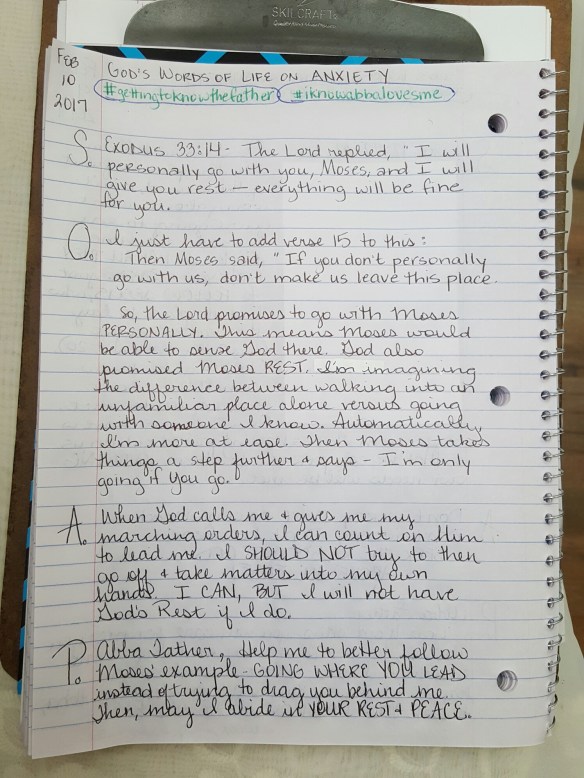 SKILCRAFT
FEB
10
2017
GOD'S WORDS OF LIFE ON ANXIETY
#gettingtoknowthefather #iknowabbalovesme
S. EXODUS 33:14 - The Lord replied, "I will
personally go with you, Moses, and I will
give you rest — everything will be fine
for you.
O. I just have to add verse 15 to this:
Then Moses said, "If you don't personally
go with us, don't make us leave this place.
So, the Lord promises to go with Moses
PERSONALLY. This means Moses would
be able to sense God there. God also
promised Moses REST. I'm imagining
the difference between walking into an
unfamiliar place alone versus going
with someone I know. Automatically,
I'm more at ease. Then Moses takes
things a step further & says - I'm only
going if You go.
A. When God calls me & gives me my
marching orders, I can count on Him
to lead me. I SHOULD NOT try to then
go off & take matters into my own
hands. I CAN, BUT I will not have
God's Rest if I do.
P. Abba Father, Help me to better follow
Moses' example - GOING WHERE YOU LEAD
instead of trying to drag you behind me.
Then, may I abide in YOUR REST & PEACE.